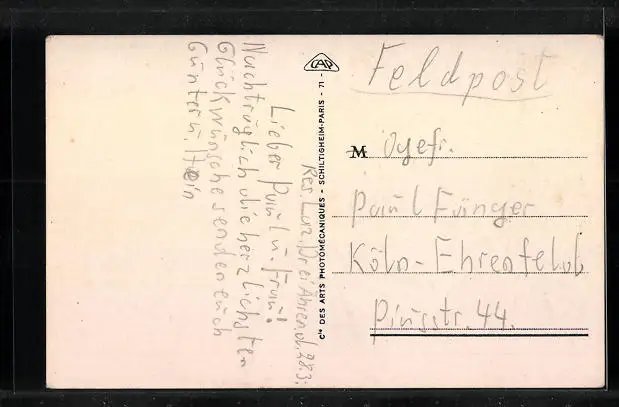 Res. Laz. Drei Ähren, d. 28.3.
Lieber Paul u. Frau!
Nachträglich die herzlichsten
Glückwünsche senden euch
Günter u. Hein
CAP
Cie DES ARTS PHOTOMÉCANIQUES - SCHILTIGHEIM-PARIS - 71 -
Feldpost
M Ogefr.
Paul Fünger
Köln-Ehrenfeld
Piusstr. 44.